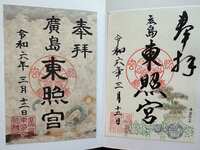 奉拝
廣島
東照宮
令和六年三月十二日
奉拝
広島
東照宮
令和六年三月十二日